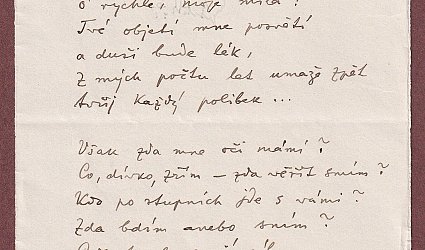 ó rychle, moje
Tvé objetí mne posvětí
a duši bude lék,
z mých počtu let umaže zpět
tvůj každý polibek...
Však zda mne oči mámí?
Co, dívko, zřím – zda věřit smím?
Kdo po stupních jde s vámi?
Zda bdím anebo sním?